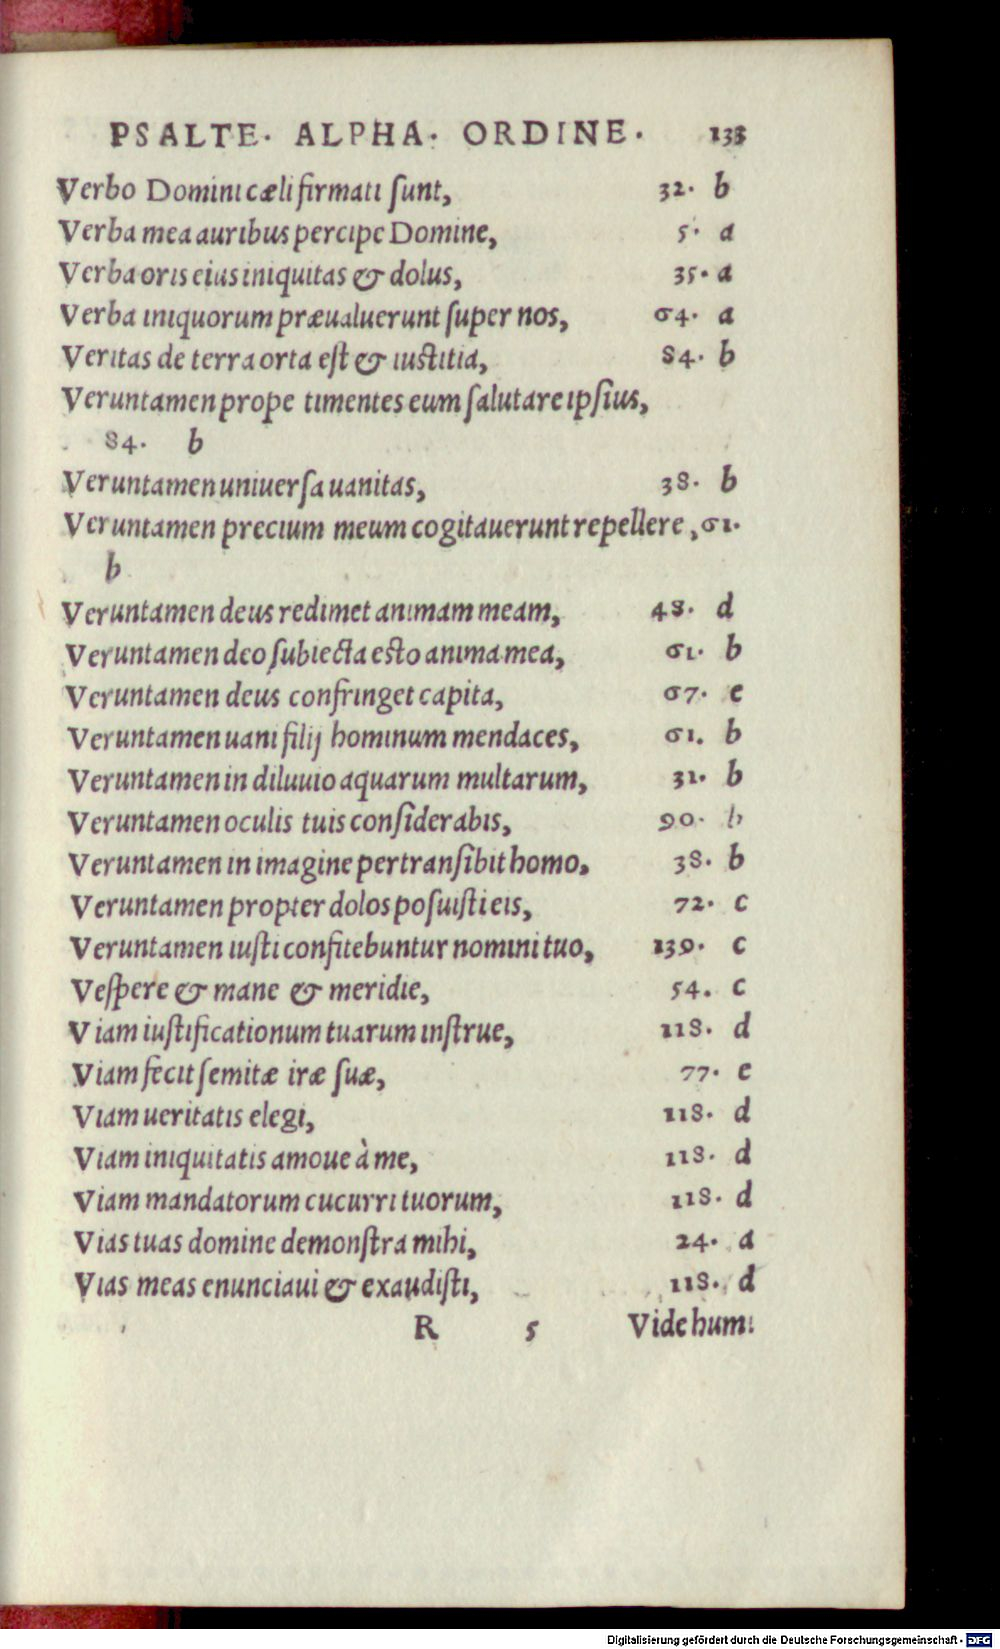 PSALTE· ALPHA· ORDINE· 133
Verbo Domini cæli firmati ſunt, 32· b
Verba mea auribus percipe Domine, 5· a
Verba oris eius iniquitas & dolus, 35· a
Verba iniquorum præualuerunt ſuper nos, 64· a
Veritas de terra orta eſt & iuſtitia, 84· b
Veruntamen prope timentes eum ſalutare ipſius,
84· b
Veruntamen uniuerſa uanitas, 38· b
Veruntamen precium meum cogitauerunt repellere, 61·
b
Veruntamen deus redimet animam meam, 48· d
Veruntamen deo ſubiecta eſto anima mea, 61· b
Veruntamen deus confringet capita, 67· e
Veruntamen uani filij hominum mendaces, 61. b
Veruntamen in diluuio aquarum multarum, 31· b
Veruntamen oculis tuis conſiderabis, 90· b
Veruntamen in imagine pertranſibit homo, 38· b
Veruntamen propter dolos poſuiſti eis, 72· c
Veruntamen iuſti confitebuntur nomini tuo, 139· c
Veſpere & mane & meridie, 54. c
Viam iuſtificationum tuarum inſtrue, 118· d
Viam fecit ſemitæ iræ ſuæ, 77· e
Viam ueritatis elegi, 118· d
Viam iniquitatis amoue à me, 118· d
Viam mandatorum cucurri tuorum, 118· d
Vias tuas domine demonſtra mihi, 24· a
Vias meas enunciaui & exaudiſti, 118· d
R 5 Vide hum:
Digitalisierung gefördert durch die Deutsche Forschungsgemeinschaft - DFG